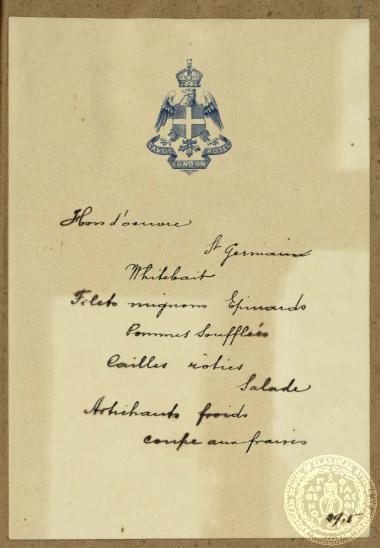 SAVOY HOTEL
LONDON
Hors d'oeuvre
St Germain
Whitebait
Filets mignons Epinards
Pommes Soufflées
Cailles rôties
Salade
Artichauts froids
coupe aux fraises